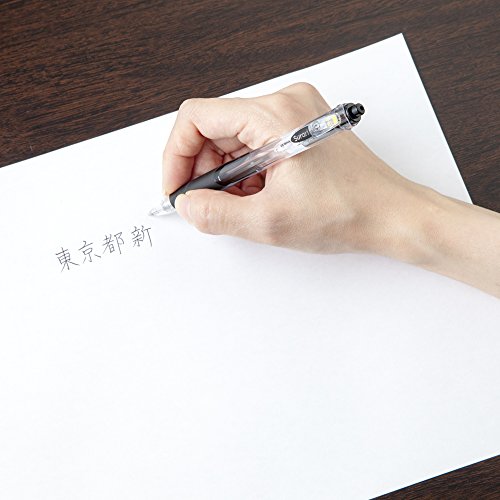 東京都新
Surari